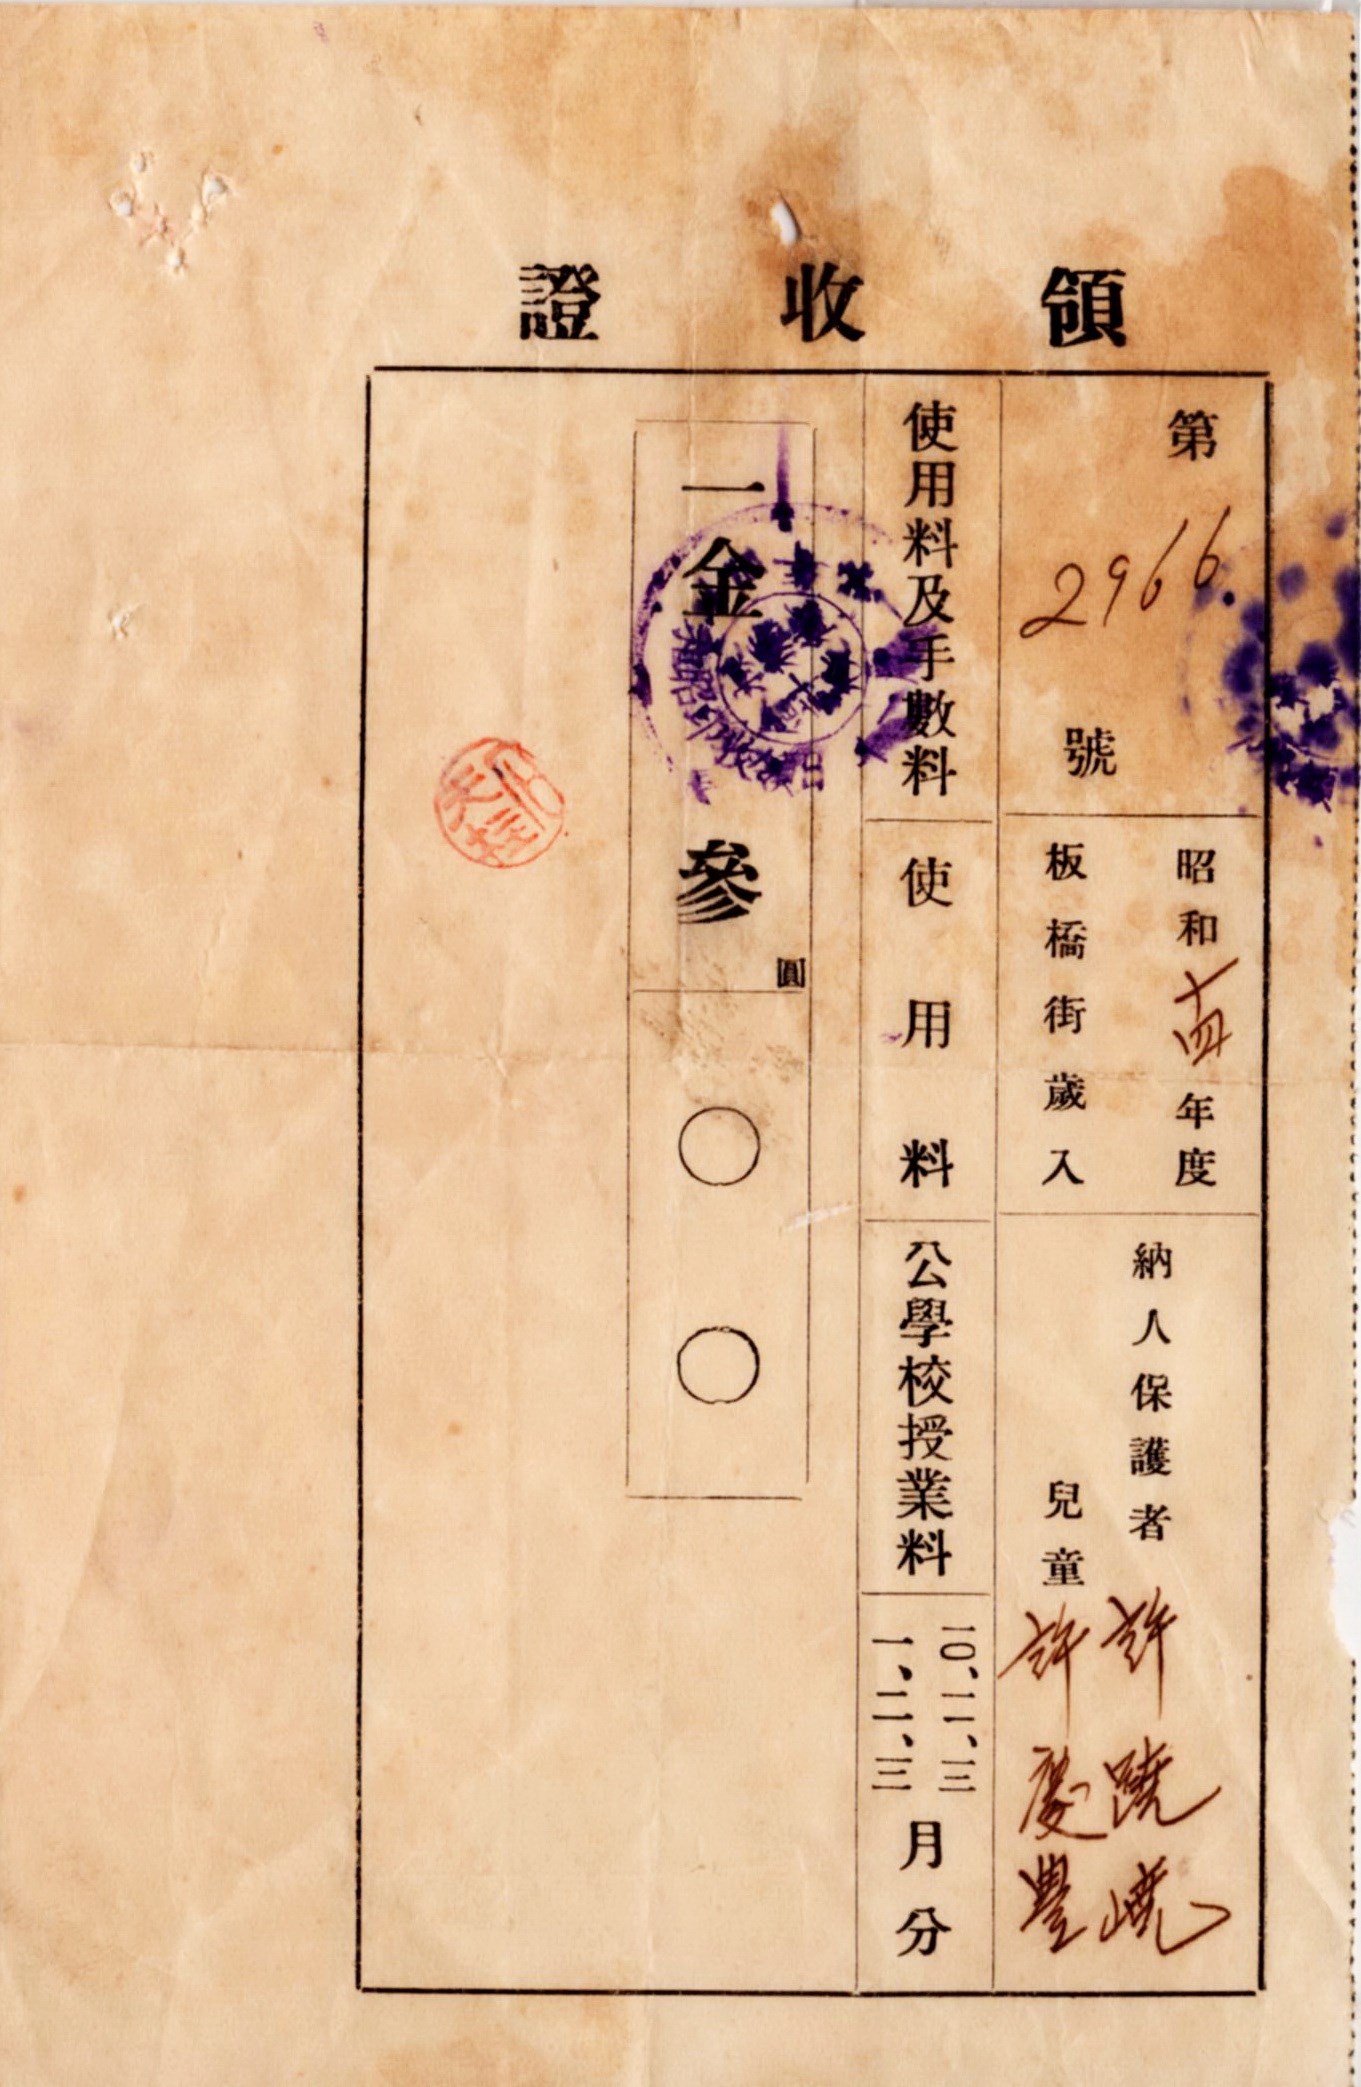 領收證
第2966號
昭和十四年度
板橋街歲入
納人保護者 許蹺嶢
兒童 許慶豐
使用料及手數料
使用料
公學校授業料
一〇、一一、一二
一、二、三
月分
一金參圓〇〇